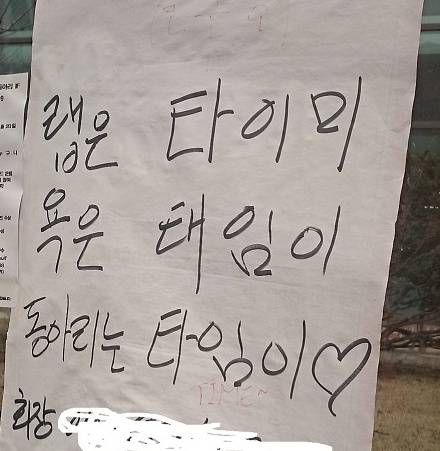 랩은 타이미
욕은 태임이
동아리는 타임이♡
TIME~
회장